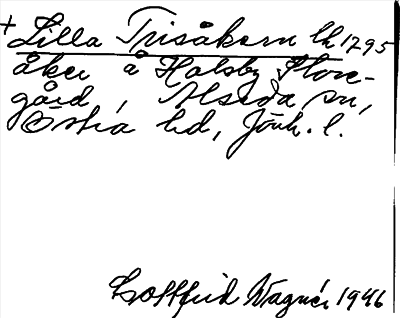 + Lilla Trisåkern lh 1295
åker å Holsby Store-
gård, Alseda sn,
Östra hd, Jönk. l.
Gottfrid Wagnér 1946